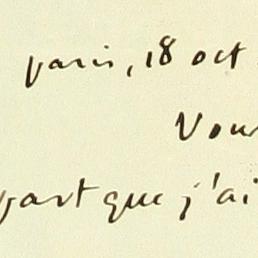 paris, 18 oct
Vous
part que j'ai